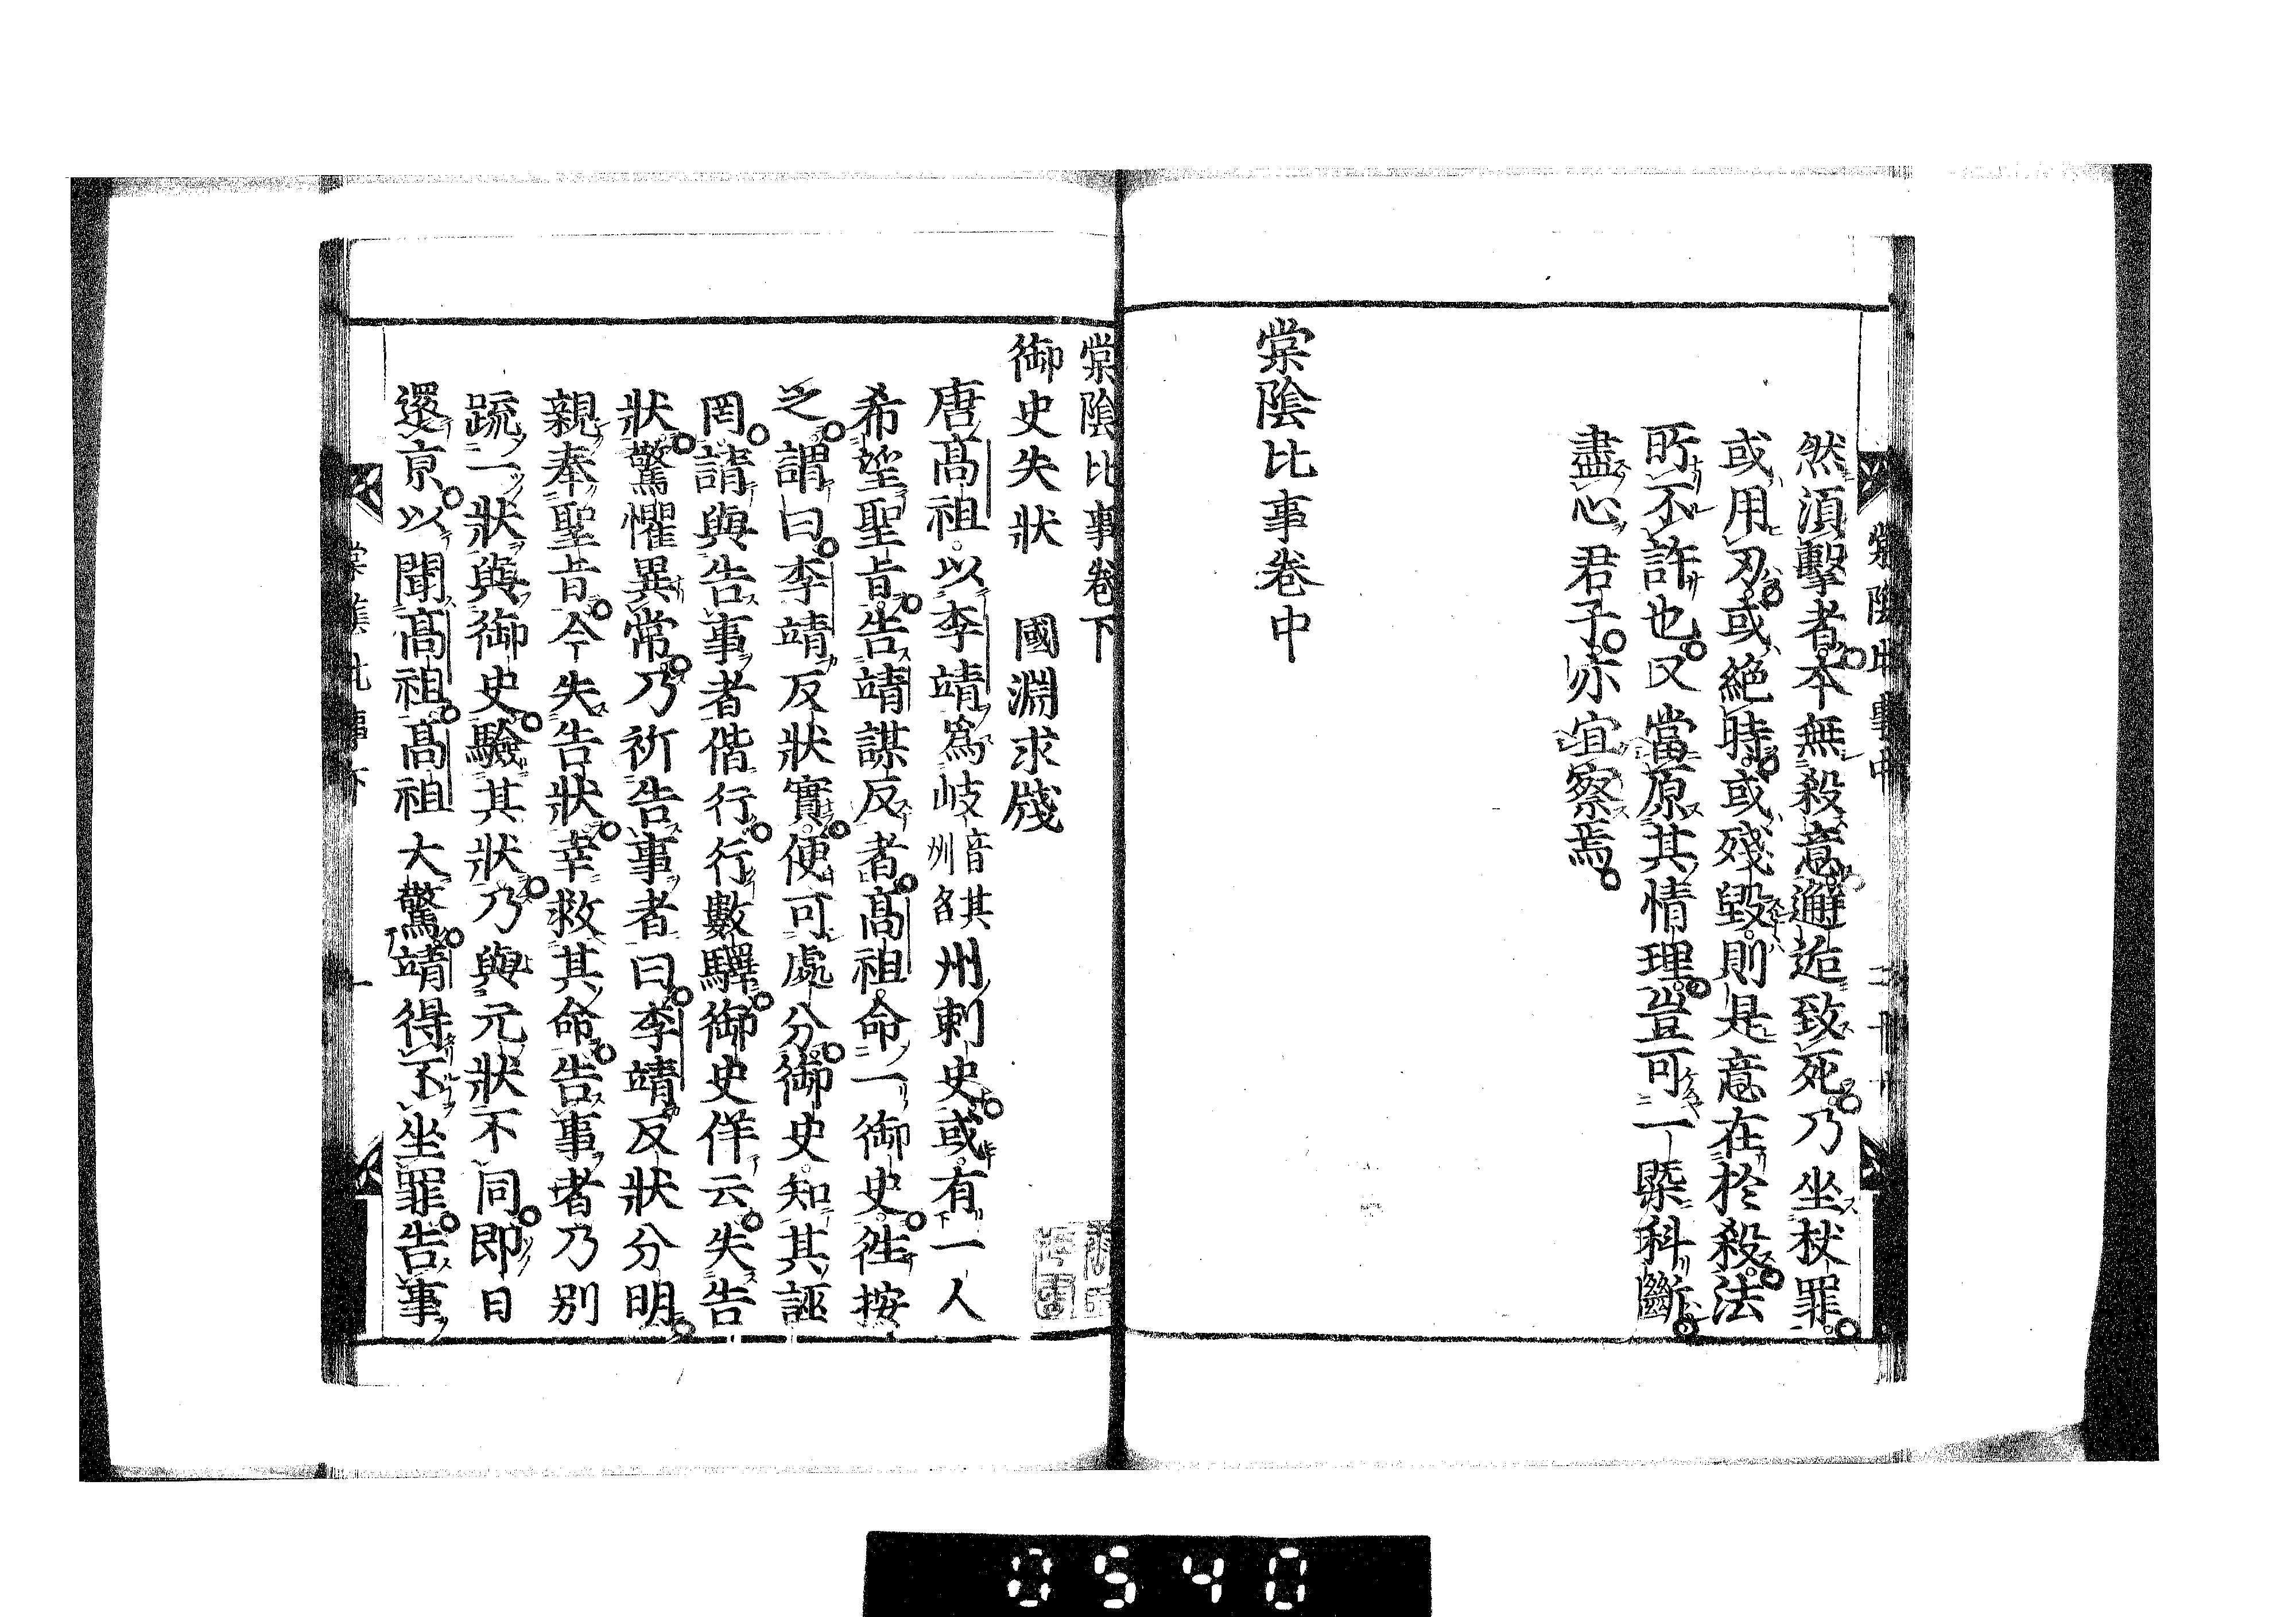 然湏擊者本無殺意邂逅致死乃坐杖罪
或用刃或絕時或殘毀則是意在於殺法
所不許也又當原其情理豈可一槩科斷
盡心君子亦宜察焉
棠陰比事卷中
棠陰比事卷下
御史失狀　國淵求牋
唐髙祖以李靖爲岐音其州名州刺史或有一人
希望聖旨告靖謀反者髙祖命一御史徃按
之謂曰李靖反狀實便可處分御史知其誣
罔請與告事者偕行行數驛御史佯云失告
狀驚懼異常乃祈告事者曰李靖反狀分明
親奉聖旨今失告狀幸救其命告事者乃别
疏一狀與御史驗其狀乃與元狀不同即日
還京以聞髙祖髙祖大驚靖得不坐罪告事
0540